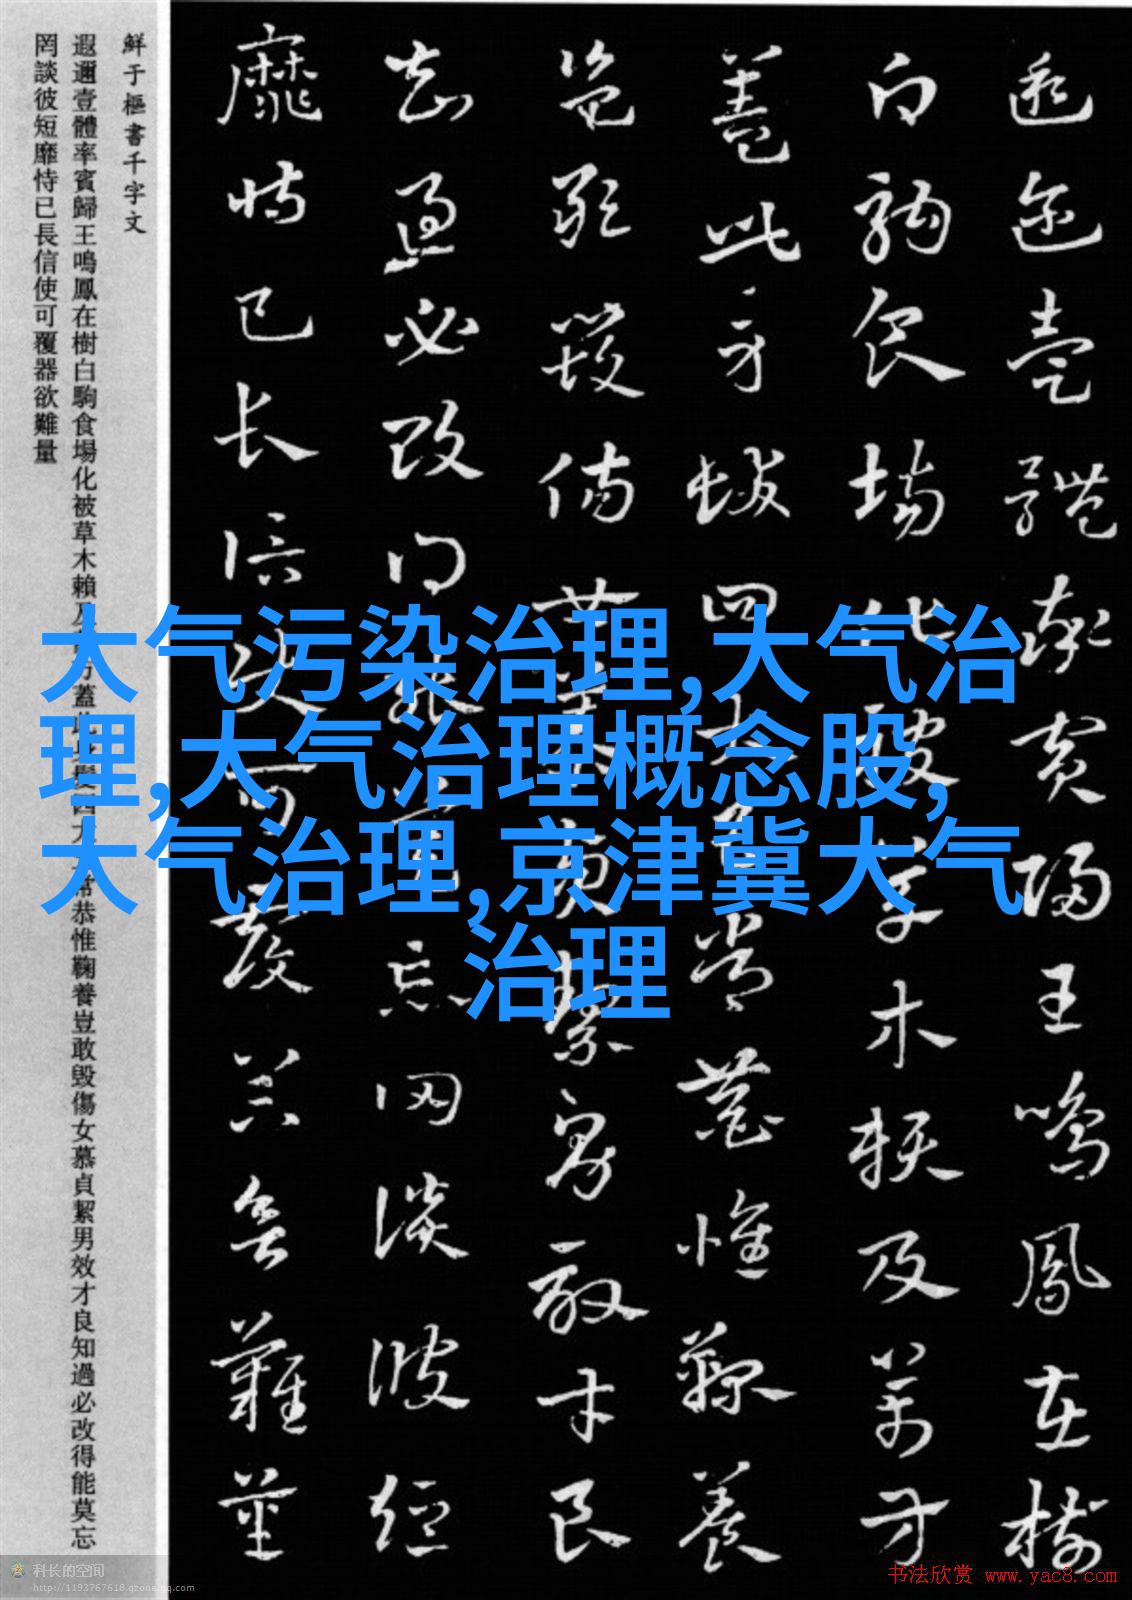 遐邇壹體率賓歸王鳴鳳在樹
白駒食場化被草木賴及萬方
蓋此身髮四大五常恭惟鞠養
豈敢毀傷女慕貞絜男效才良
知過必改得能莫忘罔談彼短
靡恃已長信使可覆器欲難量
鮮于樞書千字文
遐邇壹體率賓歸王鳴鳳在樹白駒食場化被草木賴及萬方蓋此身髮四大五常恭惟鞠養豈敢毀傷女慕貞絜男效才良知過必改得能莫忘
罔談彼短靡恃已長信使可覆器欲難量
大气污染治理,大气治
理,大气治理概念股,
大气治理,京津冀大气
治理
科长的空间
http://1193767618.qzone.qq.com
书法欣赏 www.yac8.com